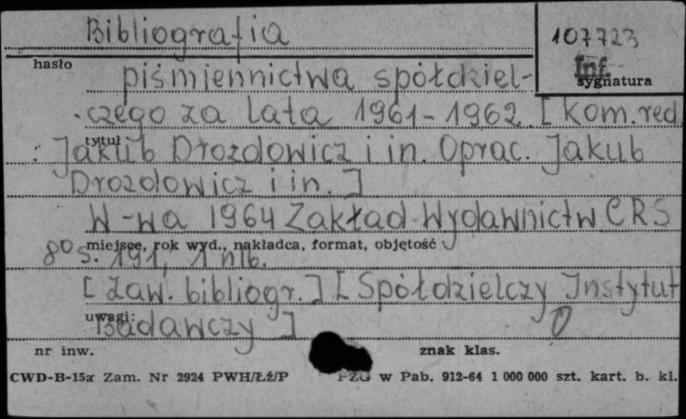 Bibliografia
107723
hasło
Inf.
sygnatura
piśmiennictwa spółdziel-
czego za lata 1961-1962. [Kom. red.
tytuł
: Jakub Drozdowicz i in. Oprac. Jakub
Drozdowicz i in.]
W-wa 1964 Zakład Wydawnictw CRS
miejsce, rok wyd., nakładca, format, objętość
8o s. 191, 1 nlb.
[Zaw. bibliogr.] [Spółdzielczy Instytut
uwagi:
Badawczy]
nr inw.
znak klas.
CWD-B-15a Zam. Nr 2924 PWH/Łź/P PZG w Pab. 912-64 1 000 000 szt. kart. b. kl.